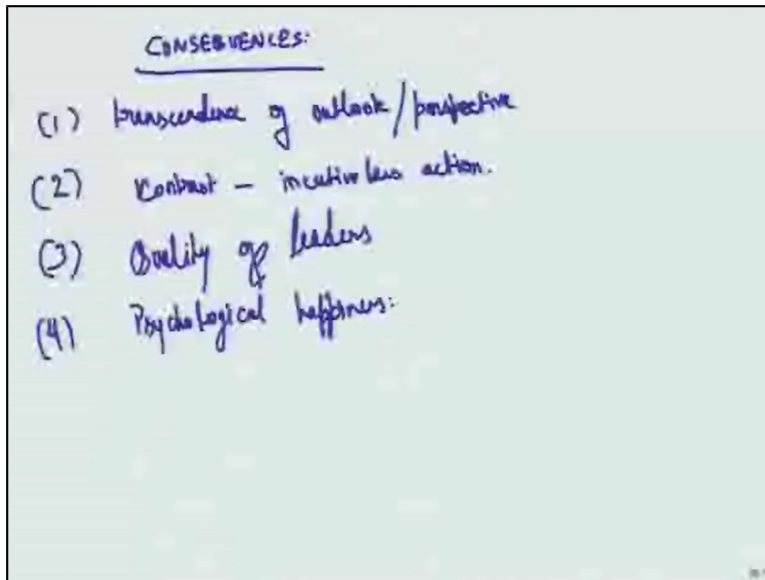 CONSEQUENCES:
(1) transcendence of outlook/perspective
(2) Contrast – incentiveless action.
(3) Quality of leaders
(4) Psychological happiness: